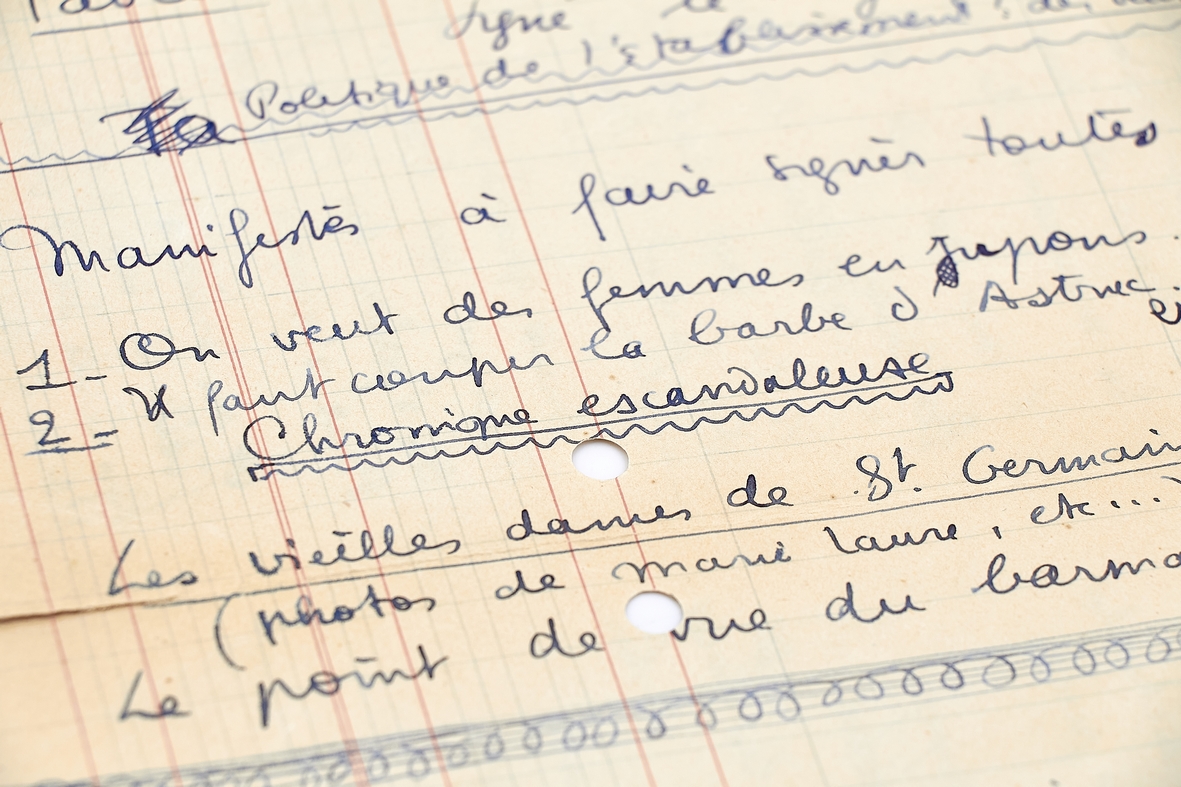 signé le
La Politique de l'établissement
Manifestès à faire signèr toutes
1 - On veut des femmes en jupons.
2 - Il faut couper la barbe d'Astruc.
Chronique escandaleuse
Les vieilles dames de St. Germain
(photos de Marie Laure, etc...)
Le point de vue du barma